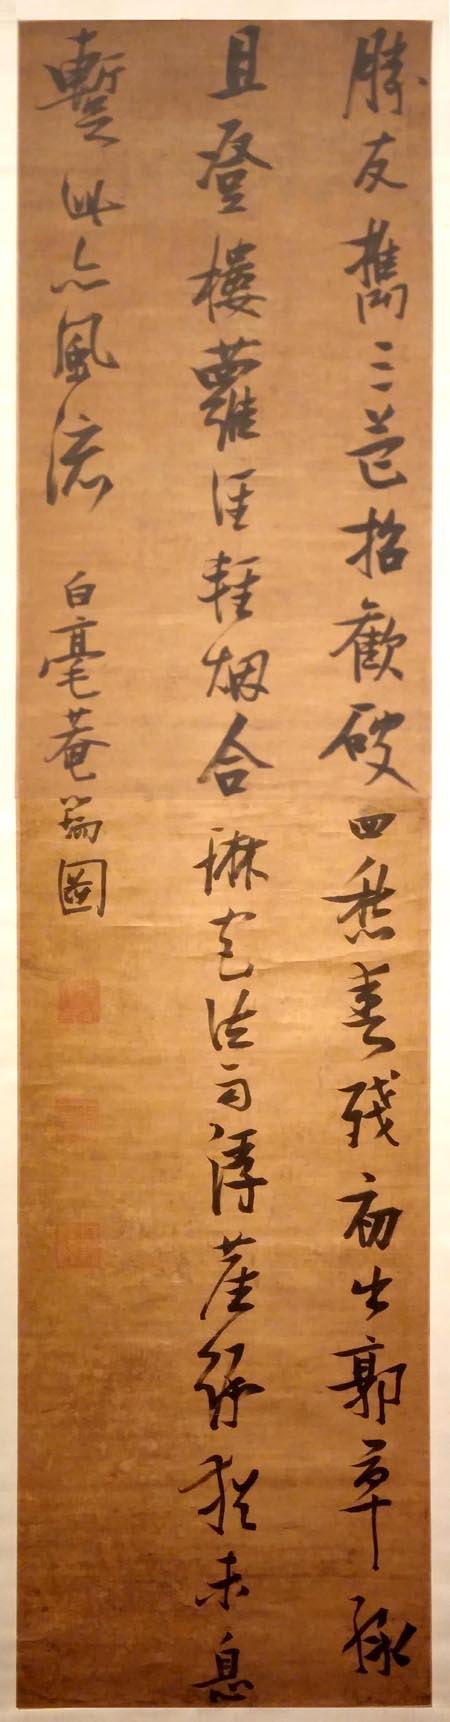 勝友攜三益招歡破四愁春殘初出郭草綠
且登樓蘿徑輕烟合琳宮法雨浮塵緣猶未息
暫此亦風流 白毫菴瑞圖